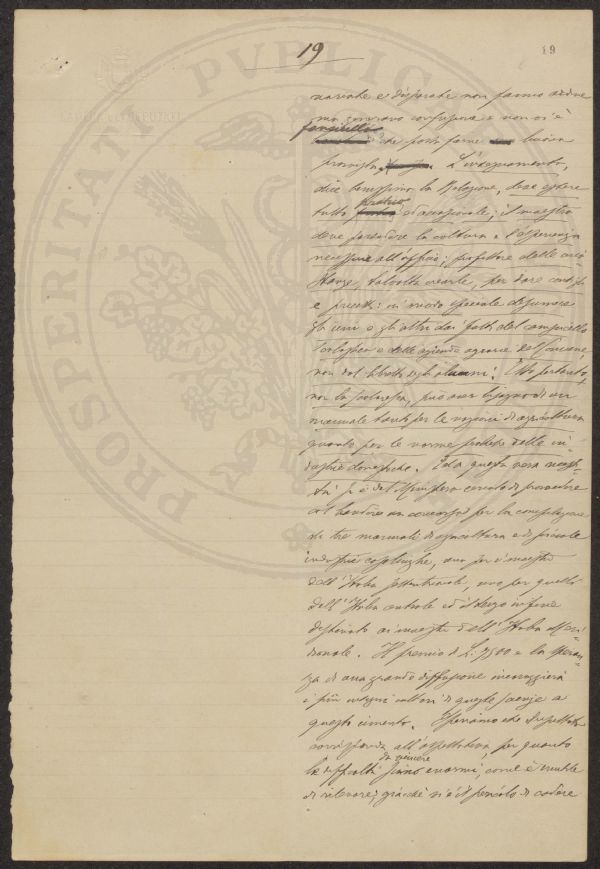 19
19
PROSPERITATI PVBLICAE
svariate e disparate non fanno ordine
ma generano confusione e non vi è
fanciullo
che possa farne buona
L'insegnamento,
dice benissimo la Relazione, deve essere
pratico
tutto ed occasionale; il maestro
deve possedere la coltura e l'esperienza
necessarie all'ufficio; profittare delle circo
stanze, talvolta crearle, per dare consigli
e precetti: in modo speciale desumere
gli uni e gli altri dai fatti del campicello
scolastico e delle aziende agrarie del Comune,
non dal libretto degli alunni. Esso pertanto,
non la scolaresca, può aver bisogno di un
manuale tanto per le nozioni di agricoltura
quanto per le norme pratiche delle in
dustrie domestiche. Ed a questa vera necessi
tà si è dal Ministero cercato di provvedere
col bandire un concorso per la compilazione
di tre manuali di agricoltura e di piccole
industrie casalinghe, uno per i maestri
dell'Italia settentrionale, uno per quelli
dell'Italia centrale ed il terzo infine
destinato ai maestri dell'Italia Meri
dionale. Il premio di L. 1500 e la speran
za di una grande diffusione incoraggierà
i più cultori di queste scienze a
questo cimento. Speriamo che
corrisponda all'aspettativa, per quanto
da vincere
le difficoltà siano enormi, come è
di rilevare; giacchè vi è il pericolo di cadere